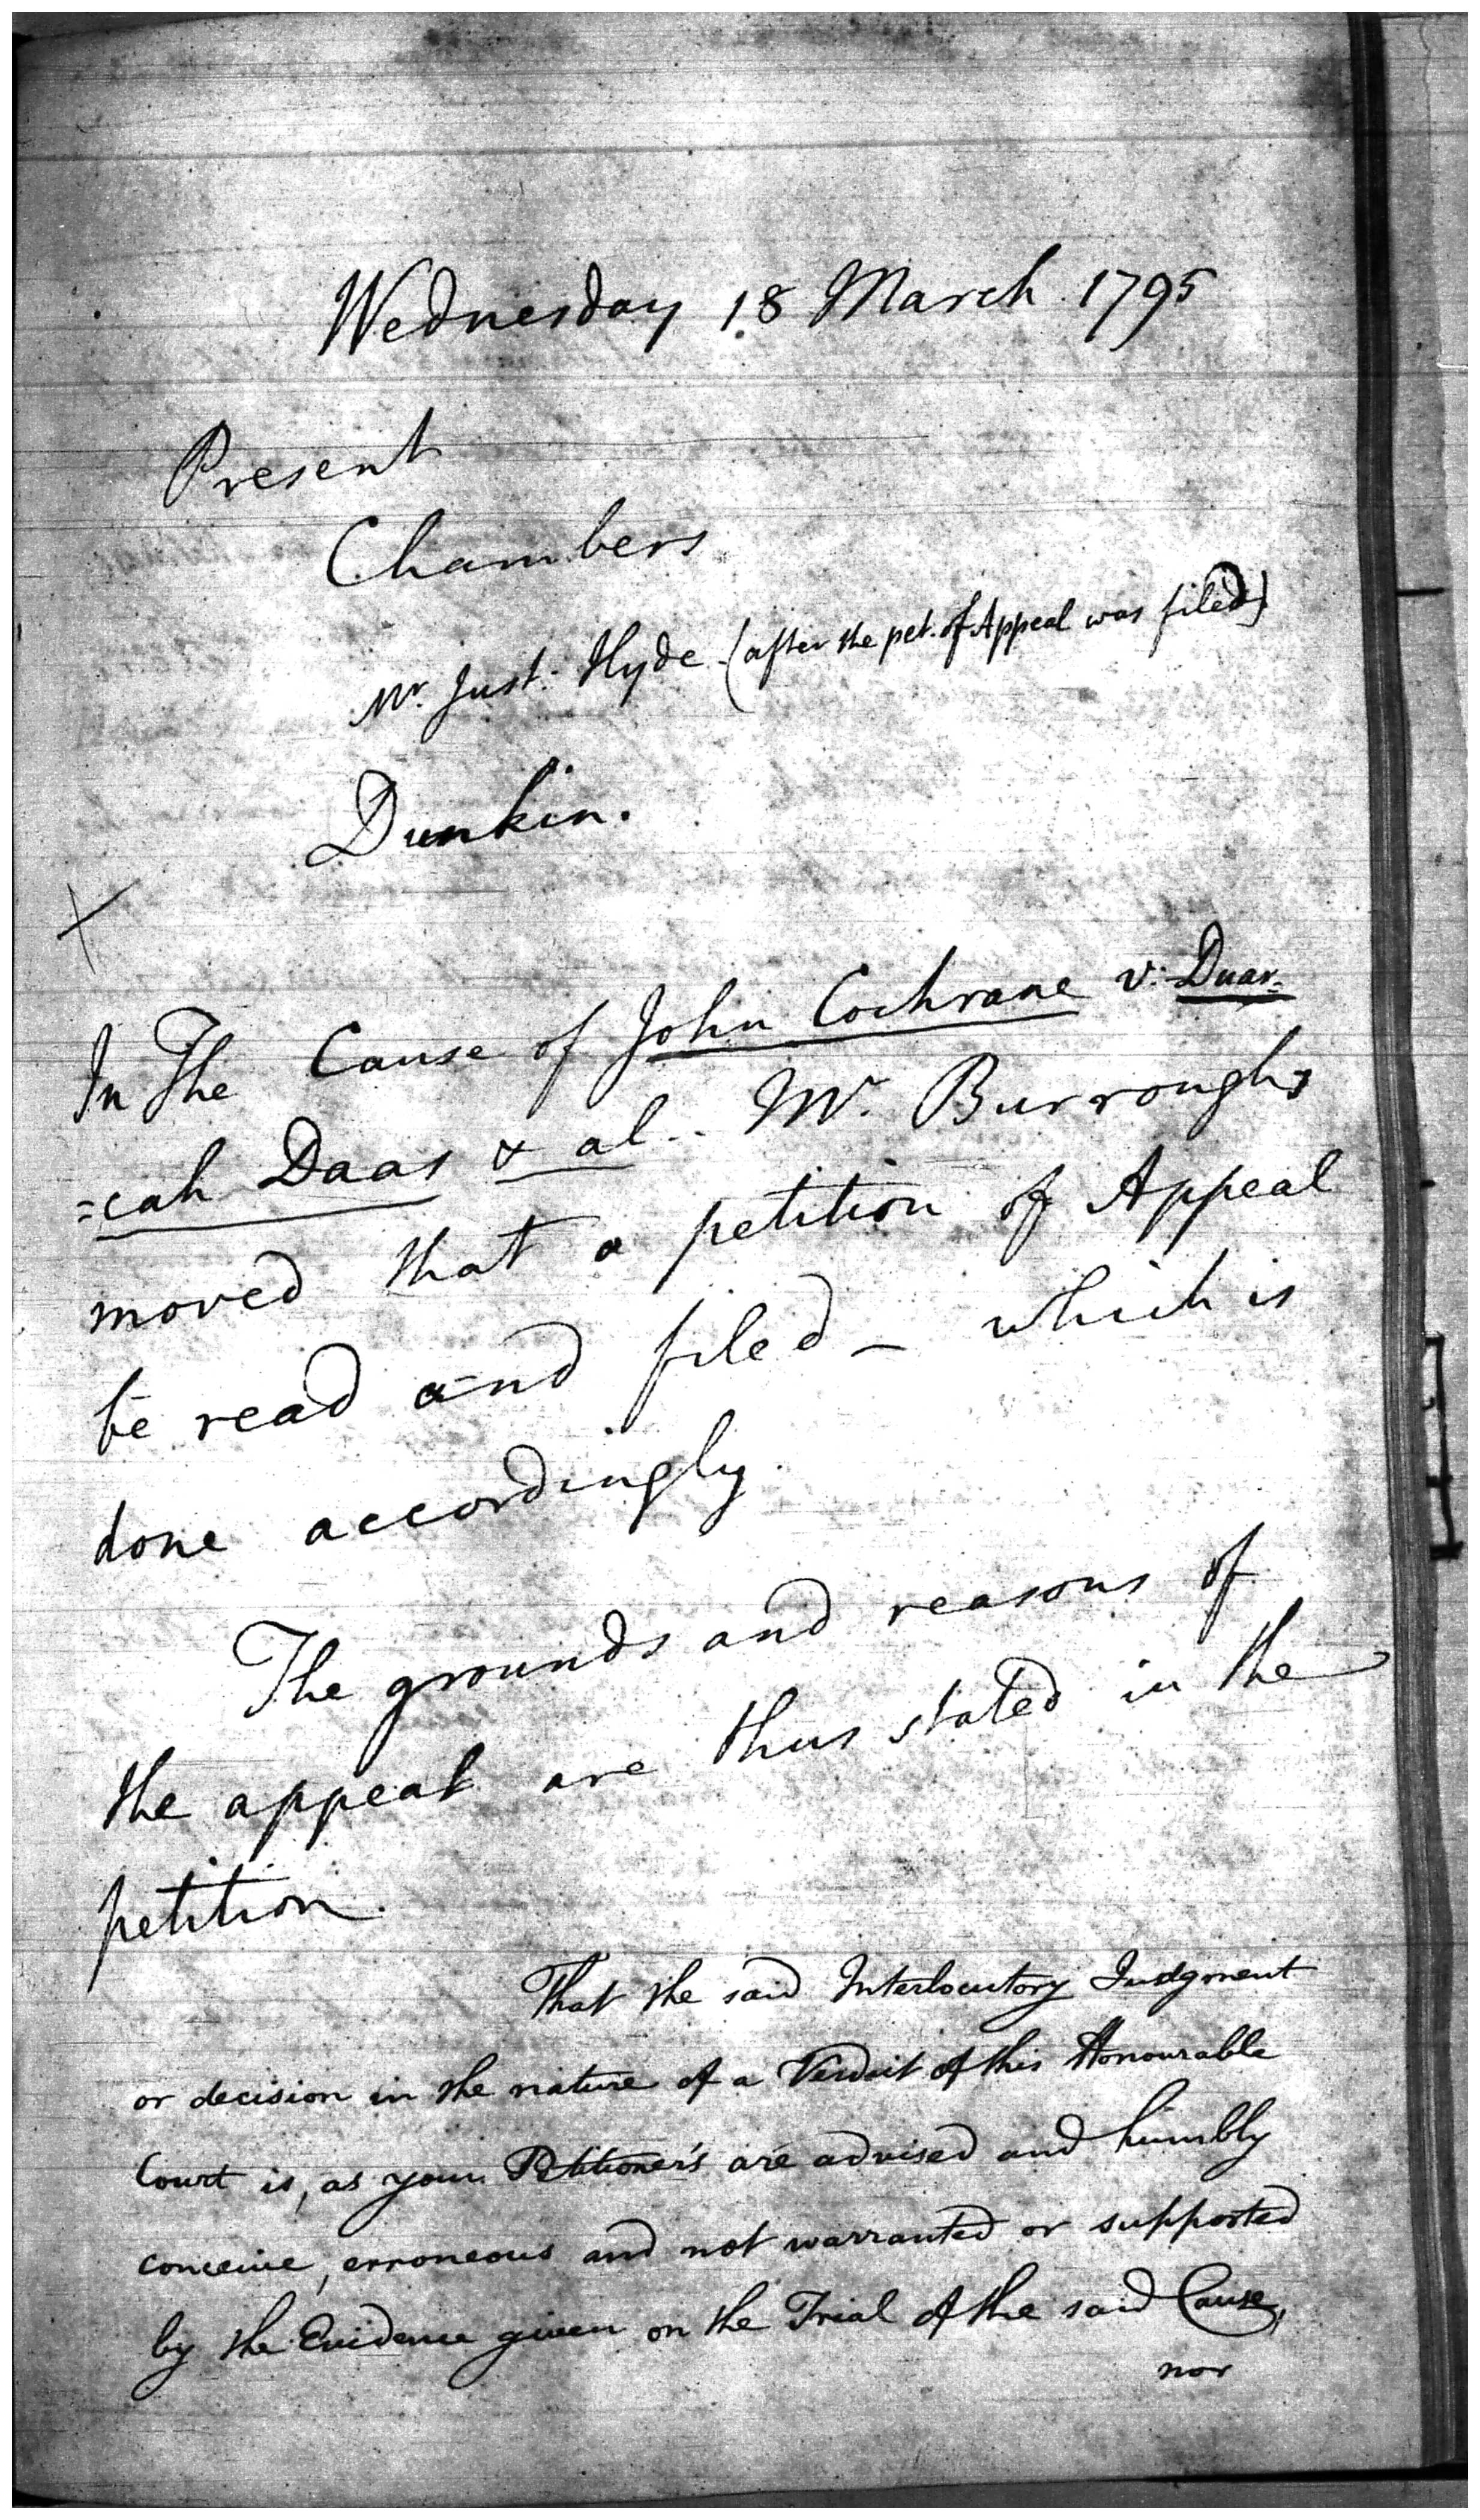 Wednesday 18 March 1795
Present
Chambers
Mr. Just: Hyde (after the pet. of Appeal was filed)
Dunkin.
In The Cause of John Cochrane v: Duar-
=cah Daas & al. Mr. Burroughs
moved that a petition of Appeal
be read and filed – which is
done accordingly.
The grounds and reasons of
the appeal are thus stated in the
petition.
That the said Interlocutory Judgment
or decision in the nature of a Verdict of this Honourable
Court is, as your Petitioner's are advised and humbly
conceive, erroneous and not warranted or supported
by the Evidence given on the Trial of the said Cause,
nor